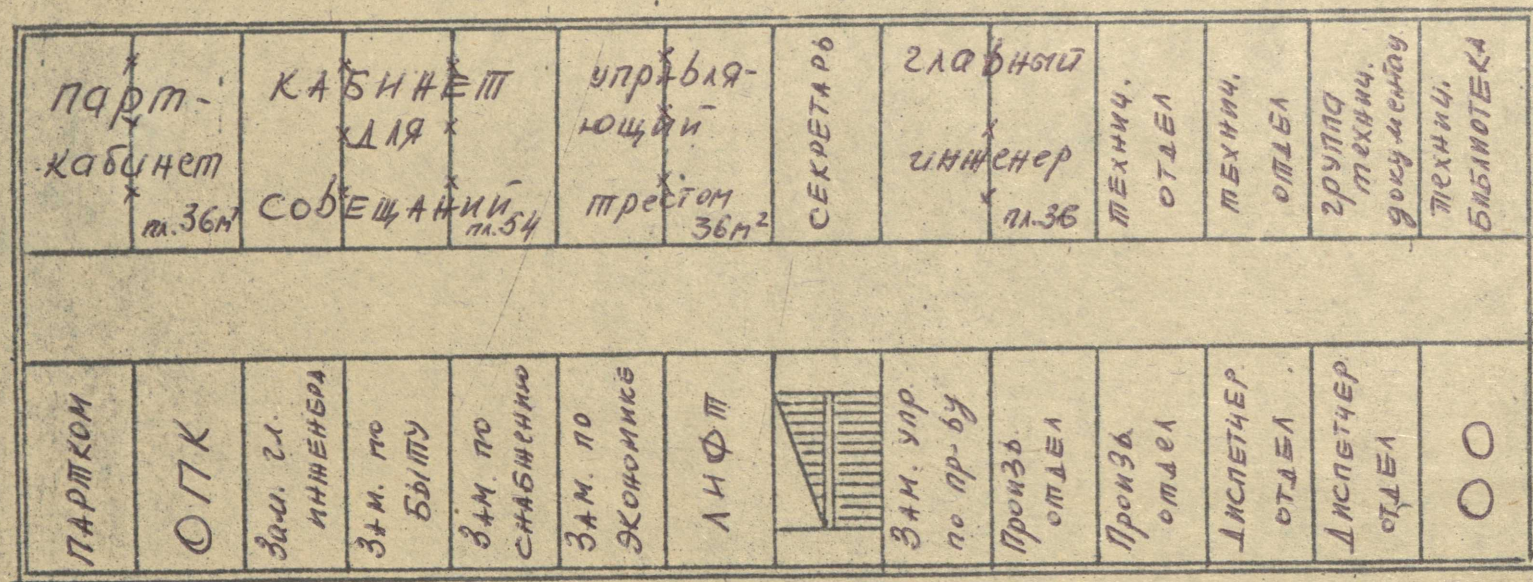 парт-
кабинет
пл. 36м²
КАБИНЕТ
для
СОВЕЩАНИЙ
пл. 54
управля-
ющий
трестом
36м²
СЕКРЕТАРЬ
главный
инженер
пл. 36
ТЕХНИЧ.
ОТДЕЛ
ТЕХНИЧ.
ОТДЕЛ
ГРУППА
технич.
ТЕХНИЧ.
БИБЛИОТЕКА
ПАРТКОМ
ОПК
Зам. гл.
ИНЖЕНЕРА
ЗАМ. ПО
БЫТУ
ЗАМ. ПО
СНАБЖЕНИЮ
ЗАМ. ПО
ЭКОНОМИКЕ
ЛИФТ
ЗАМ. УПР.
по пр-ву
Произв.
отдел
Произв.
отдел
ДИСПЕТЧЕР.
ОТДЕЛ
ДИСПЕТЧЕР.
ОТДЕЛ
ОО